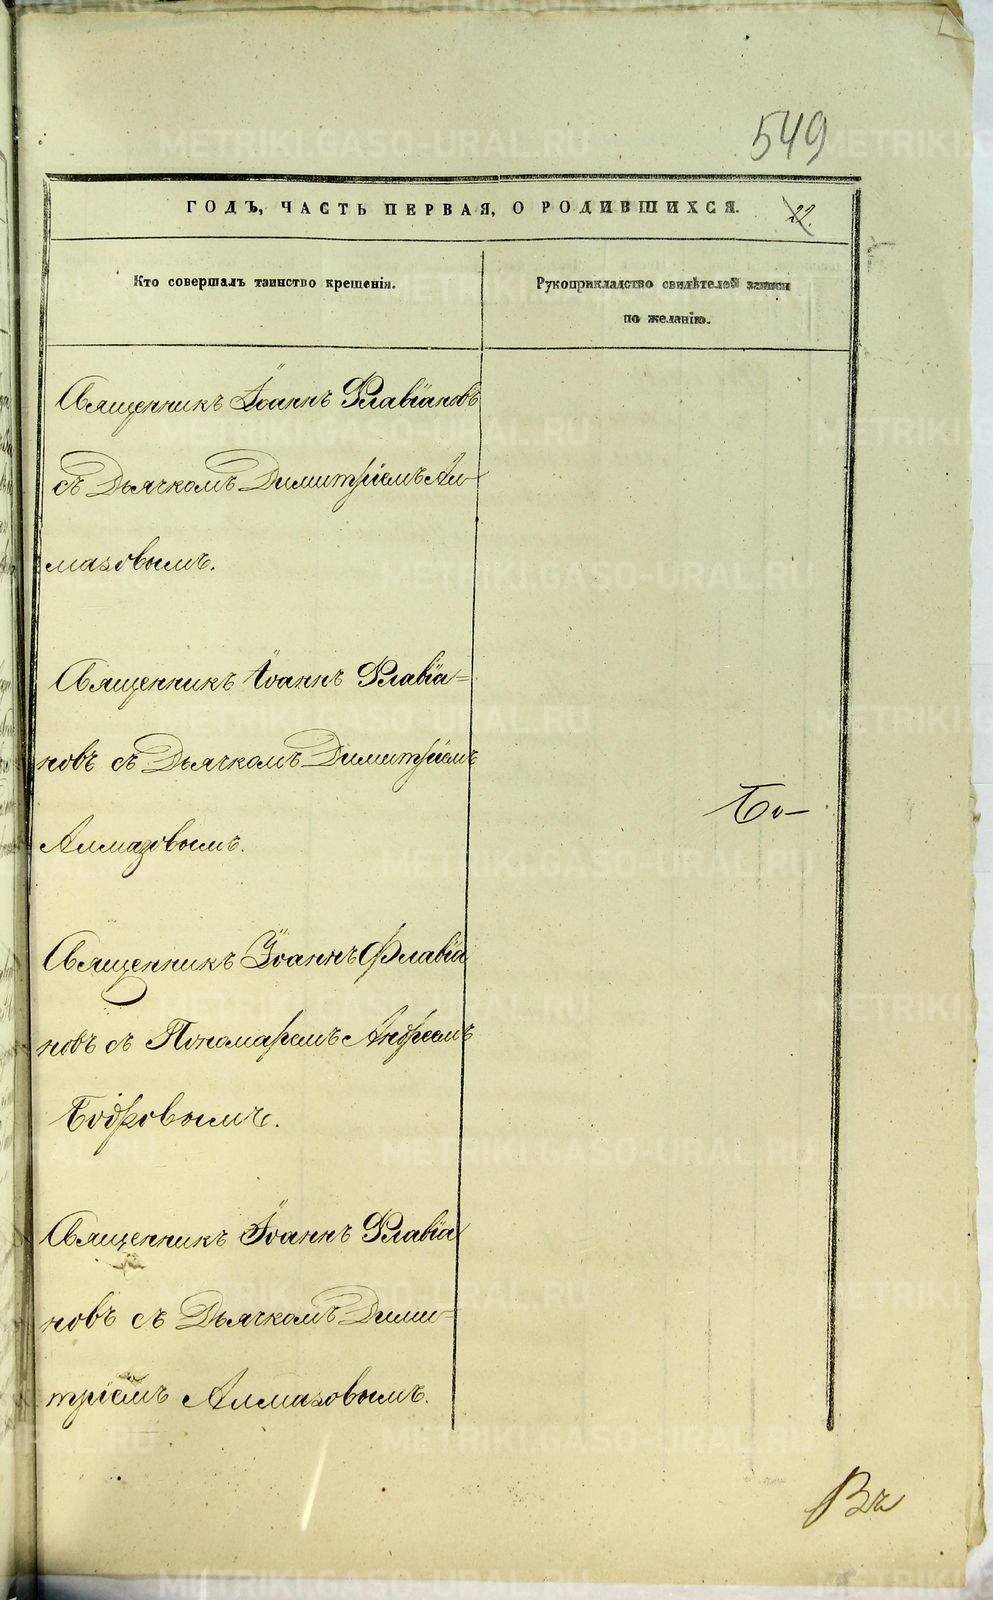 549
ГОДЪ, ЧАСТЬ ПЕРВАЯ, О РОДИВШИХСЯ.
22.
Кто совершалъ таинство крещенія.
Рукоприкладство свидѣтелей записи
по желанію.
Священникъ Іоаннъ Флавіановъ
съ Дьячкомъ Димитріемъ Ал-
мазовымъ.
Священникъ Іоаннъ Флавіа=
новъ съ Дьячкомъ Димитріемъ
Алмазовымъ.
Священникъ Іоаннъ Флавіа
новъ съ Пономаремъ Андреемъ
Бодровымъ.
Священникъ Іоаннъ Флавіа
новъ съ Дьячкомъ Дими=
тріемъ Алмазовымъ.
Бо-
Въ
METRIKI.GASO-URAL.RU